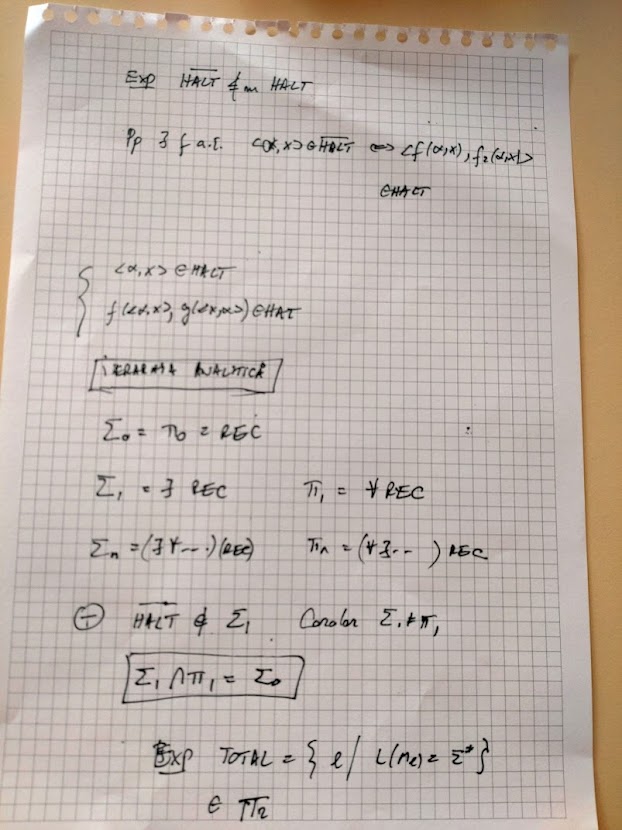 Exp \overline{HALT} ≰m HALT
Pp ∃ f a.î. <α,x> ∈ \overline{HALT} ⇔ <f(α,x), f₂(α,x)>
∈ HALT
{ <α,x> ∈ HALT
f(<α,x>, g(<x,α>) ∈ HAT
IERARHIA ANALITICĂ
Σ₀ = π₀ = REC
Σ₁ = ∃ REC π₁ = ∀ REC
Σₙ = (∃ ∀ ....) (REC) πₙ = (∀ ∃ -- ) REC
\overline{HALT} ∉ Σ₁ Corolar Σ₁ ≠ π₁
Σ₁ ∩ π₁ = Σ₀
Exp TOTAL = { e / L(Me) = Σ* }
∈ Π₂